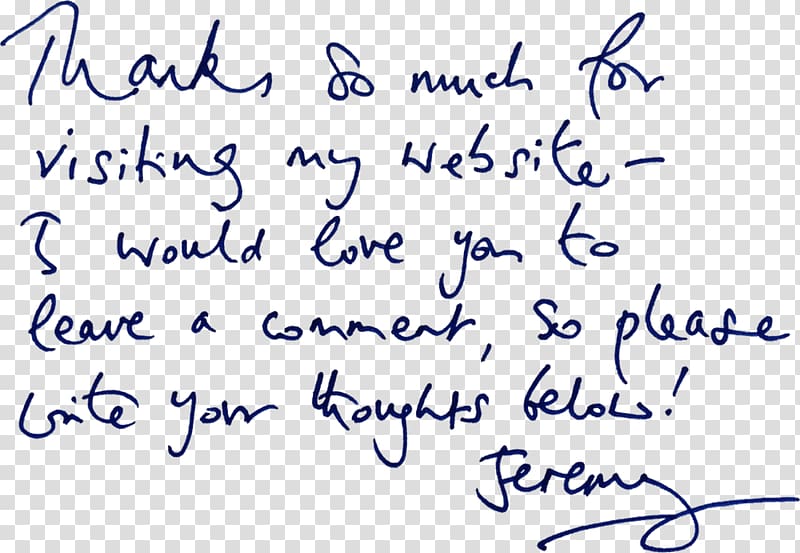 Thanks so much for
visiting my website –
I would love you to
leave a comment, so please
write your thoughts below!
Jeremy